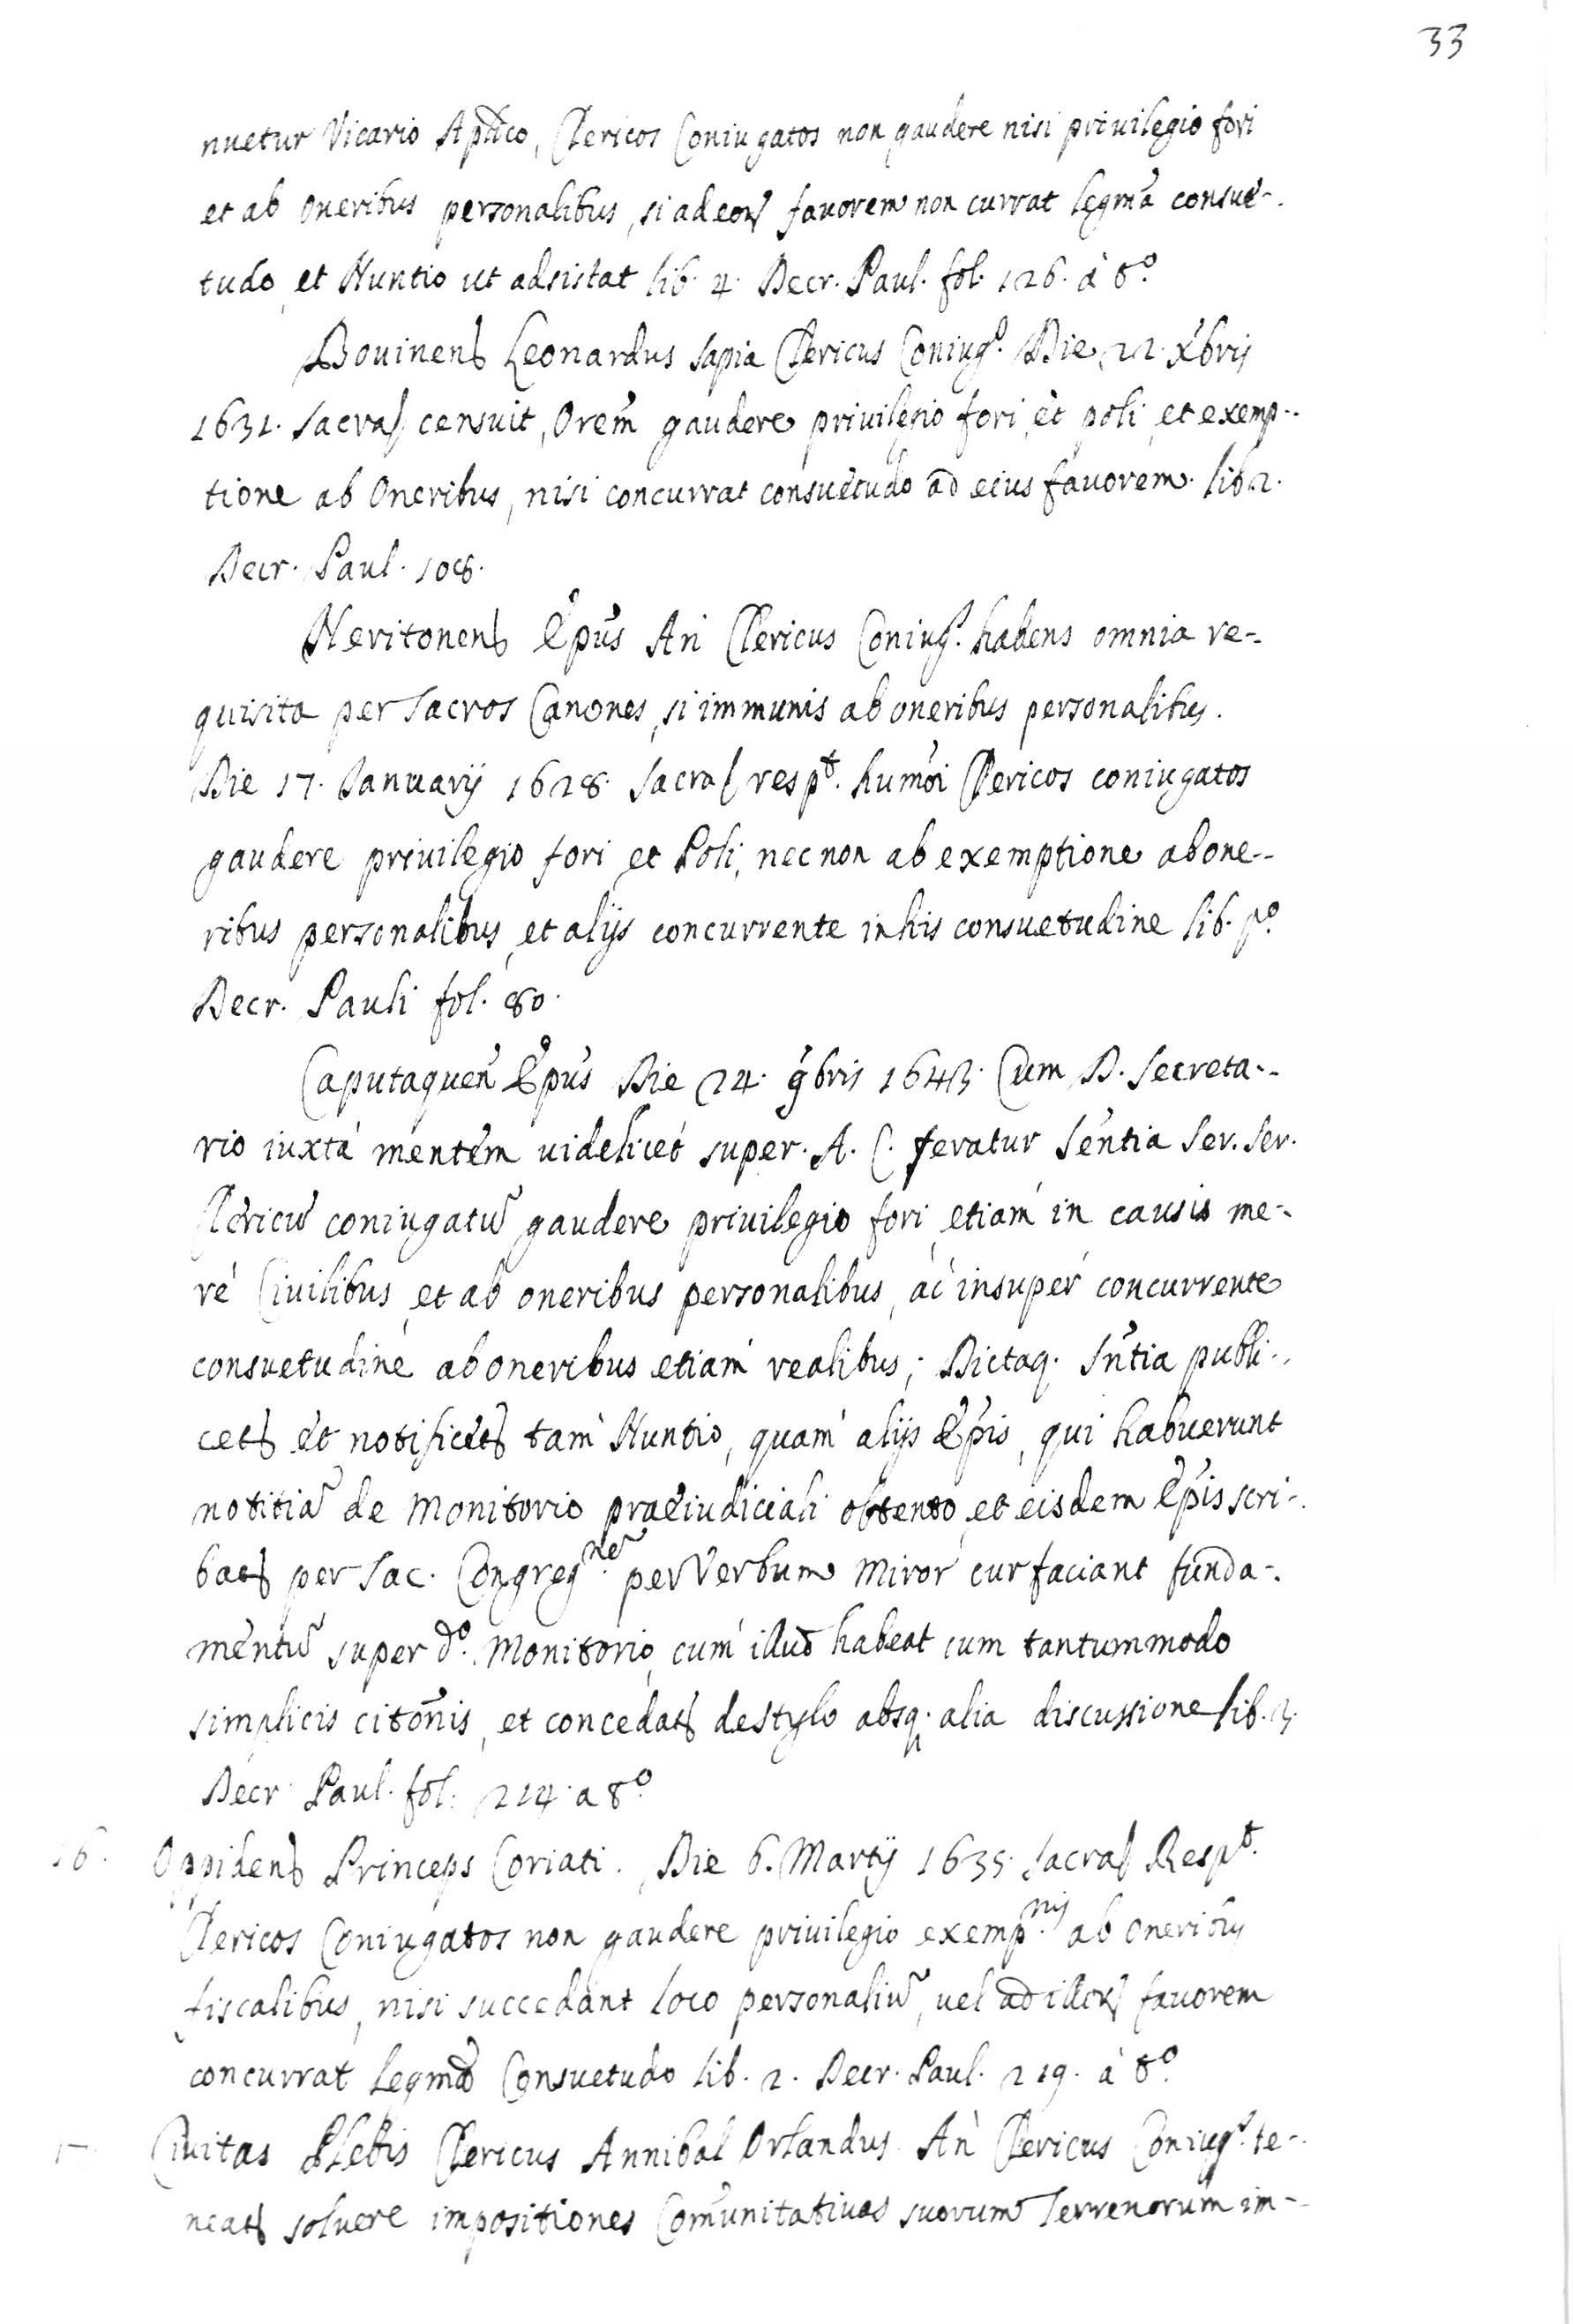 33
nuetur Vicario Aptico, Clericos Coniugatos non gaudere nisi priuilegio fori
et ab oneribus personalibus, si ad eor favorem non currat legma consue-
tudo, et Nuntio ut adsistat lib. 4. Decr. Paul. fol. 126. à to.
Bouinens Leonardus Sapia Clericus Coniugs. Die 22. Xbris
1631. Sacra censuit, Orem gaudere priuilegio fori, et poli, et exemp-
tione ab Oneribus, nisi concurrat consuetudo ad eius fauorem. lib 2.
Decr. Paul. 108.
Neritonens Epus An Clericus Coniugs. habens omnia re-
quisita per Sacros Canones, si immunis ab oneribus personalibus.
Die 17. Januarij 1628. Sacra respt. humoi Clericos coniugatos
gaudere priuilegio fori et Poli, nec non ab exemptione ab one-
ribus personalibus, et alijs concurrente in his consuetudine lib. po.
Decr. Pauli fol. 80.
Caputaquen Epus Die 24. 9bris 1643. Cum D. Secreta-
rio iuxta mentem uidelicet super. A. C. feratur Sentia Ser. Ser.
Clericu coniugatu gaudere priuilegio fori, etiam in causis me-
ré Ciuilibus, et ab oneribus personalibus, ac insuper concurrente
consuetudine ab oneribus etiam realibus; Dictaq. Sntia publi-
cet et notificet tam Nuntio, quam alijs Epis, qui habuerunt
notitia de Monitorio praeiudiciali obtento, et eisdem Epis scri-
bat per Sac. Congregne. per Verbum Miror cur faciant funda-
mentu super do. Monitorio, cum illud habeat cum tantummodo
simplicis citonis, et concedat de stylo absq. alia discussione lib. 3.
Decr. Paul. fol. 214. a to.
16. Oppidens Princeps Coriati. Die 6. Martij 1635. Sacra Respt.
Clericos Coniugatos non gaudere priuilegio exempnis. ab oneribus
fiscalibus, nisi succedant loco personaliu, uel ad illor fauorem
concurrat legma Consuetudo lib. 2. Decr. Paul. 219. à to.
Ciuitas Plebis Clericus Annibal Orlandus. An Clericus Coniugs. te-
neat soluere impositiones Comunitatiuas suorum Terrenorum im-